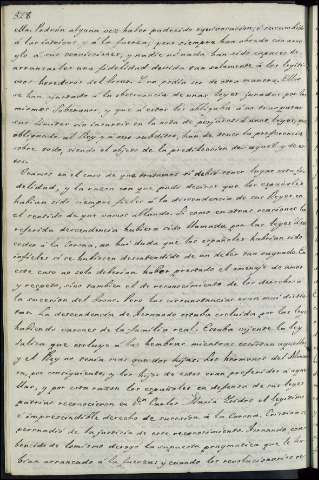 328
Ellos podrán alguna vez haber padecido equivocacion, ó sucumbido
á los intereses y á la fuerza; pero siempre han obrado con arre
glo á sus convicciones, y nadie ni nada han sido capaces de
arrancarles una fidelidad debida tan solamente á los legíti
mos herederos del Trono. Y no podia ser de otra manera. Ellos
se han ajustado á la observancia de unas leyes juradas por los
mismos Soberanos, y que á estos les obligaba á no traspasar
sus límites sin incurrir en la nota de perjuros: á unas leyes que
obligando al Rey y á sus subditos, han de tener la preferencia
sobre todo, siendo el objeto de la predileccion de aquel y de es
tos.
Veamos en el caso de que tratamos si debió tener lugar esta fi
delidad, y la razon con que pudo decirse que los españoles
habian sido siempre fieles á la descendencia de sus Reyes en
el sentido de que vamos ablando. Si como en otras ocasiones la
referida descendencia hubiera sido llamada por las leyes á su
ceder á la Corona, no hai duda que los españoles habrian sido
infieles si se hubieran desentendido de un deber tan sagrado. En
este caso no solo deberian haber prestado el omenaje de amor
y respeto, sino tambien el de reconocimiento de los derechos á
la sucesion del Trono. Pero las circunstancias eran mui distin
tas. La descendencia de Fernando estaba excluida por las leyes
habiendo varones de la familia real. Estaba vijente la ley
Salica que excluye á las hembras mientras existieran aquellos,
y el Rey no tenía mas que dos hijas. Los hermanos del Monar
ca, por consiguiente, y los hijos de estos eran preferidos á aque
llas, y por esta razon los españoles en defensa de sus leyes
patrias reconocieron en Dn Carlos María Isidro el legítimo
é imprescindible derecho de sucesion á la Corona. Convencido
y persuadido de la justicia de este reconocimiento Fernando, con
vencido de lo mismo derogó la supuesta pragmatica que le ha
bian arrancado á la fuerza; y cuando los revolucionarios se